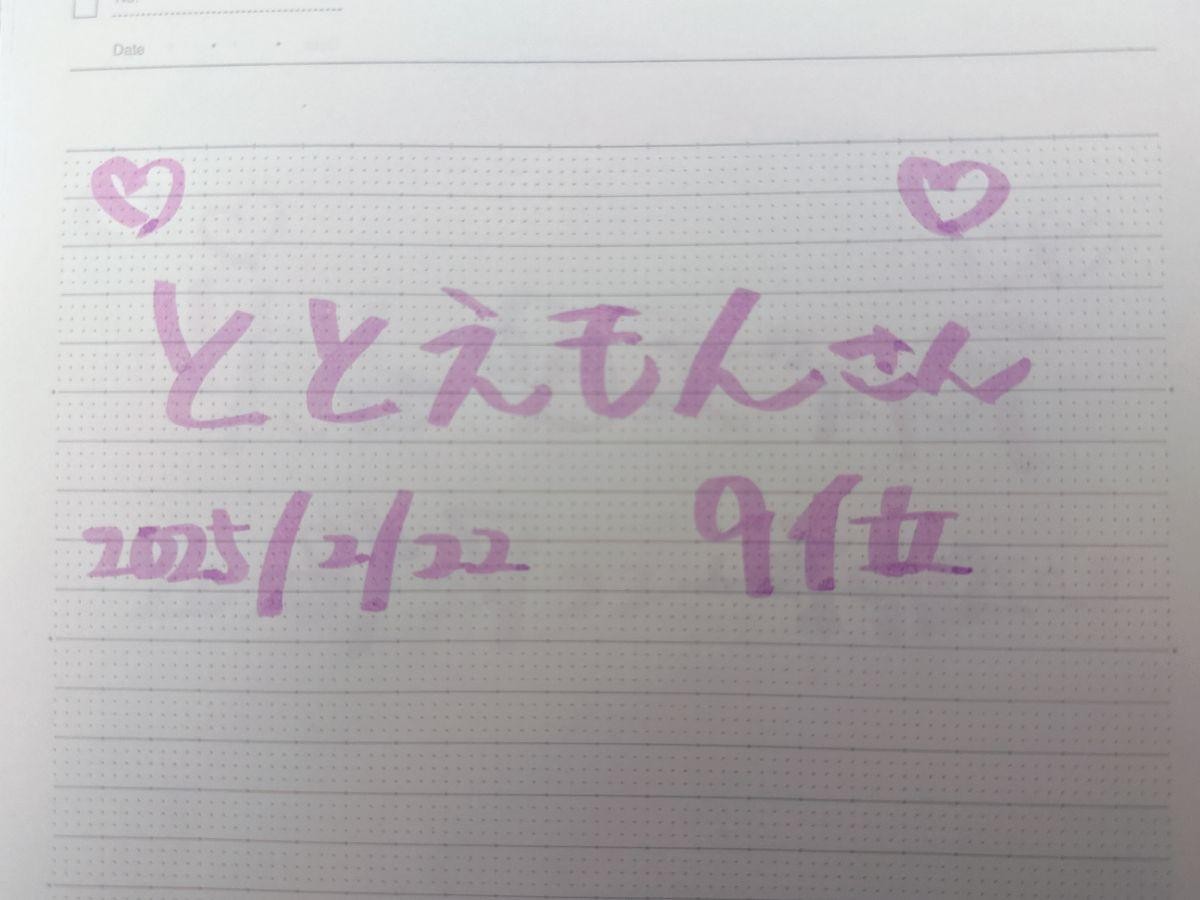 No.
Date
♡ ♡
ととえもんさん
2025/2/22 9位